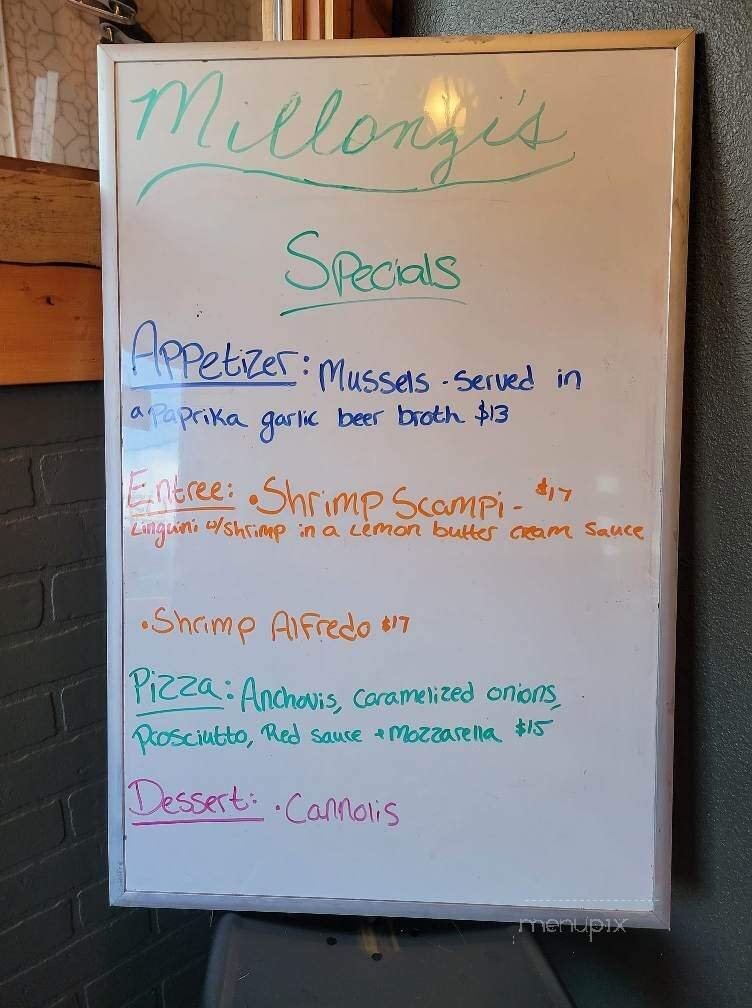 Millonzi's
Specials
Appetizer: Mussels - Served in
a Paprika garlic beer broth $13
Entree: • Shrimp Scampi - $17
Linguini w/shrimp in a Lemon butter cream sauce
• Shrimp Alfredo $17
Pizza: Anchovis, caramelized onions,
Prosciutto, Red sauce + Mozzarella $15
Dessert: • Cannolis
menupix